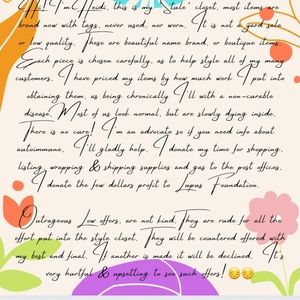 Hi! I'm Heidi, this is my "tule" closet, most items are
brand new with tags, never used, nor worn, It is not a yard sale
or low quality, These are beautiful name brand, or boutique items,
Each piece is chosen carefully, as to help style all of my many
customers, I have priced my items by how much work I put into
obtaining them, as being chronically I'll with a non-curable
disease, Most of us look normal, but are slowly dying inside,
There is no cure! I'm an advocate so if you need info about
autoimmune, I'll gladly help, I donate my time for shopping,
listing, wrapping & shipping supplies and gas to the post offices,
I donate the few dollars profit to Lupus Foundation,
Outrageous Low offers, are not kind, They are rude for all the
effort put into the style closet, They will be countered offered with
my best and final, If another is made it will be declined, It's
very hurtful & upsetting to see such offers! 😔😔